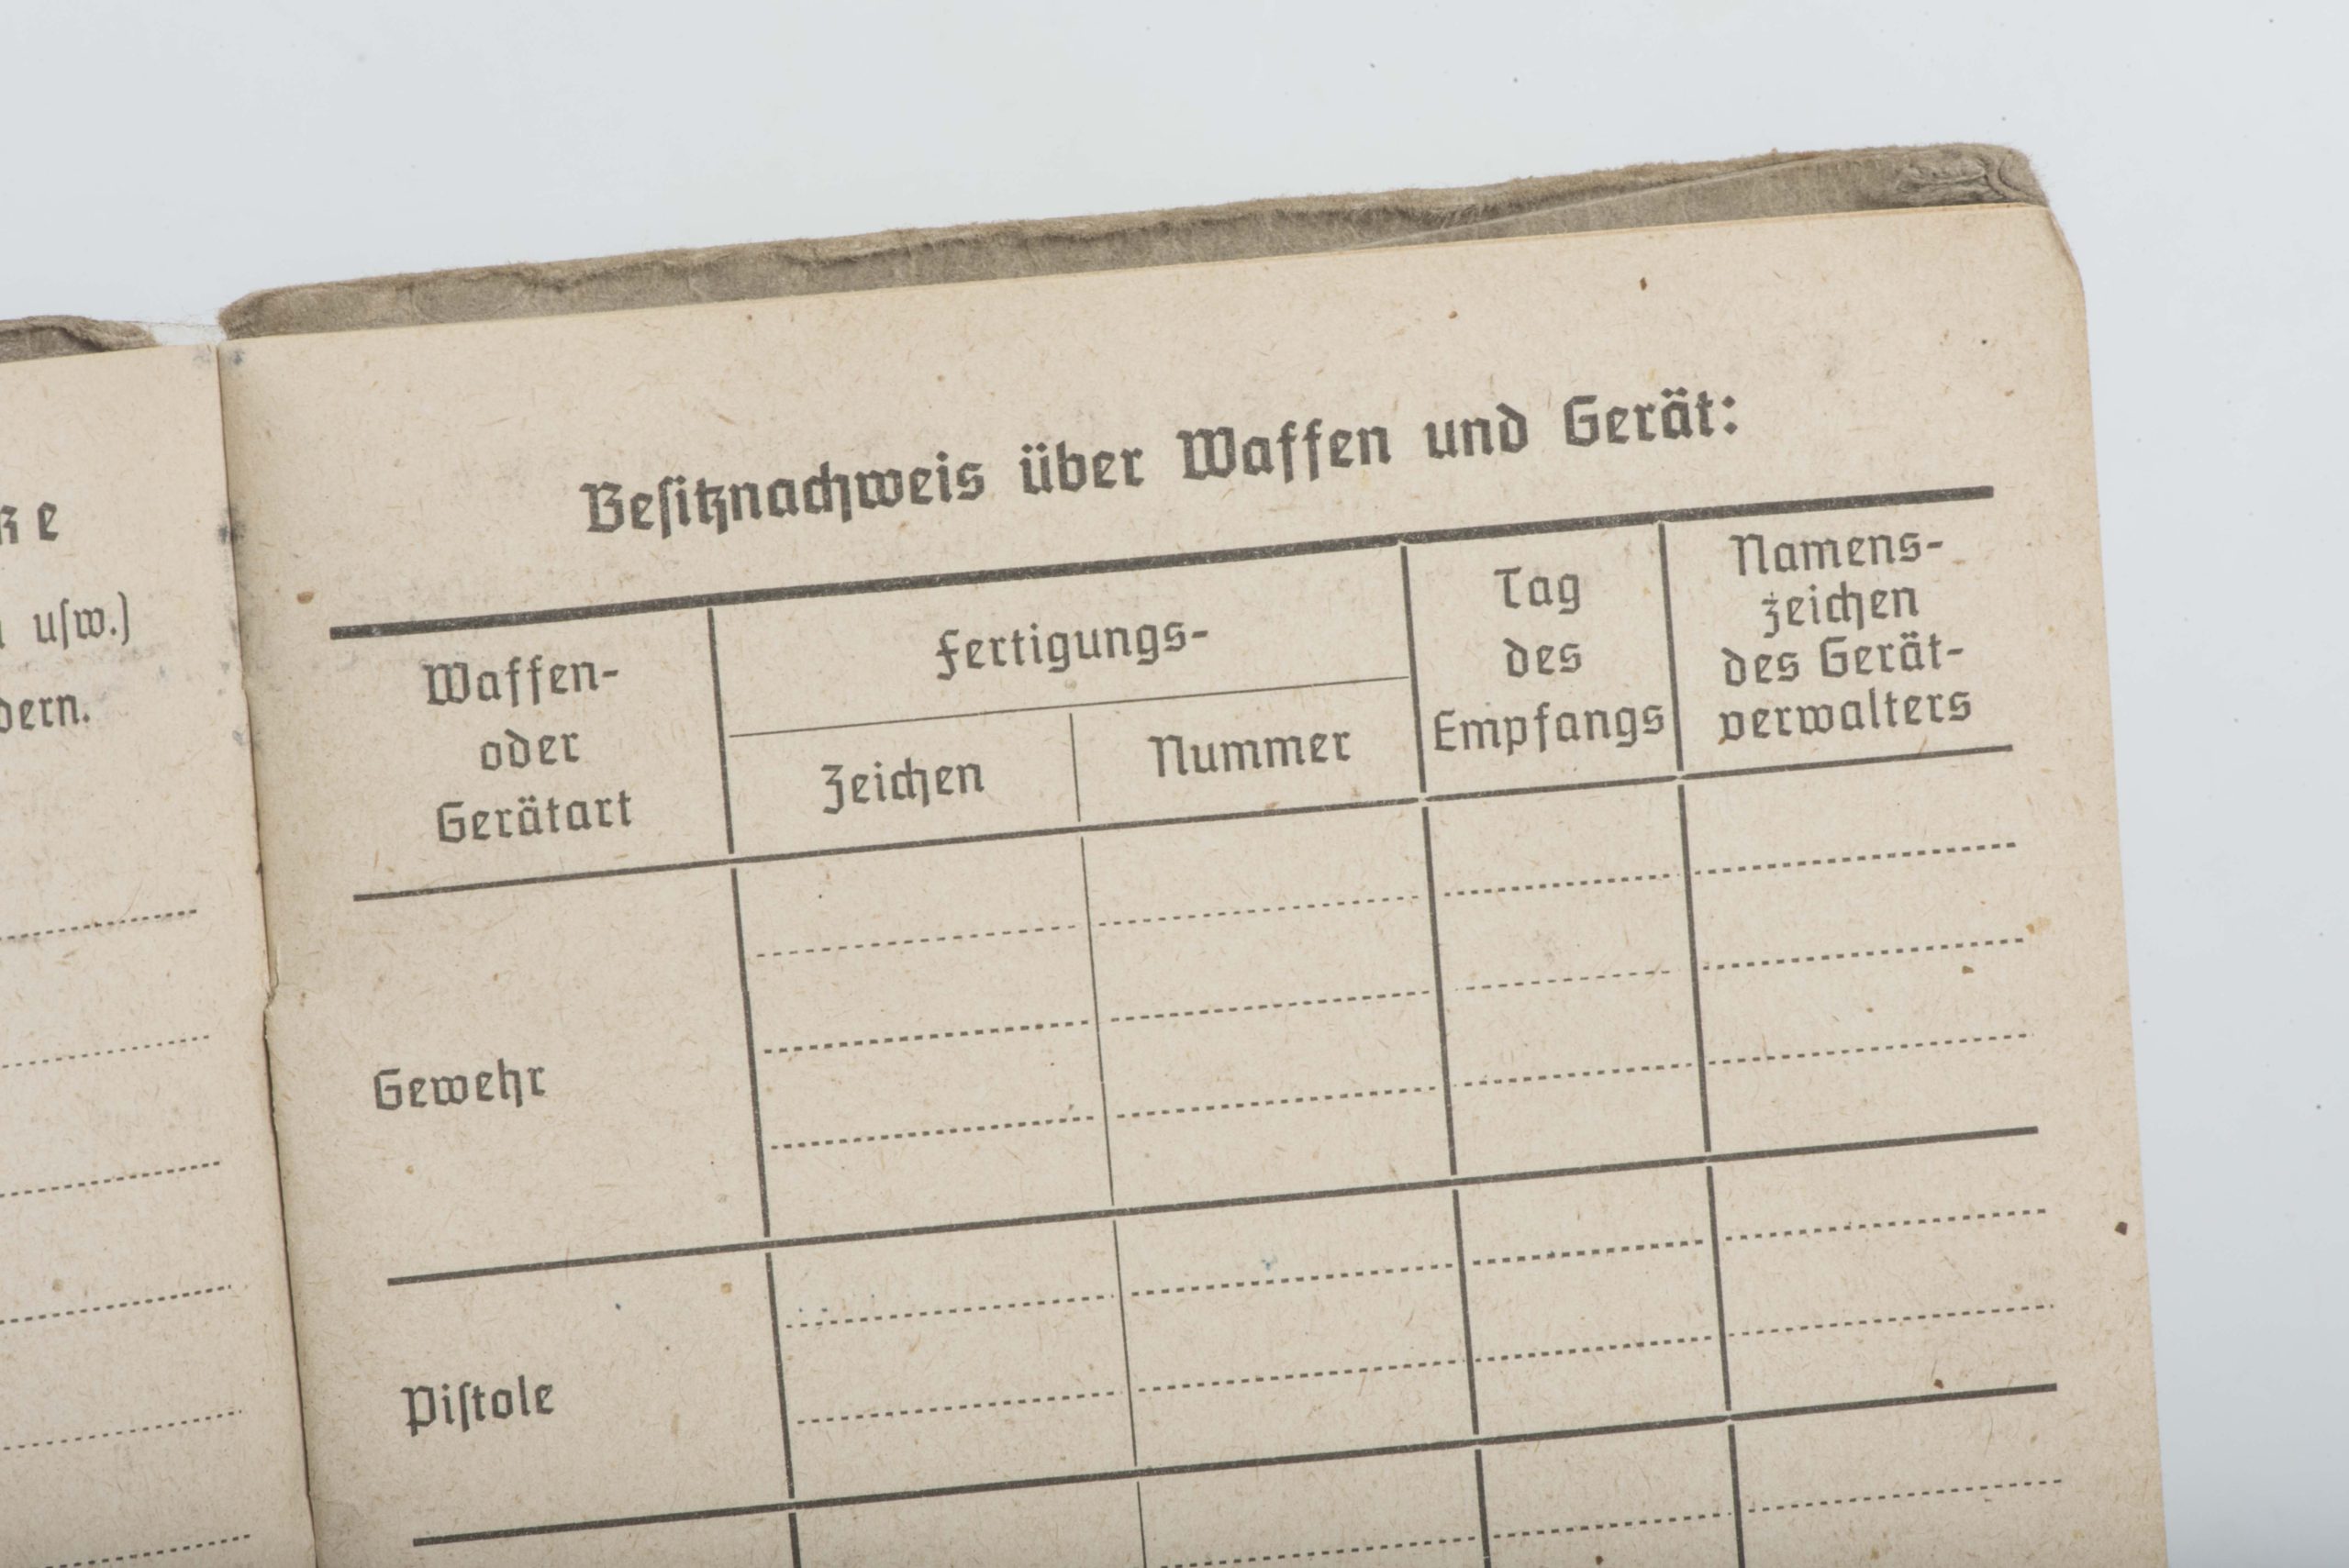 e
uſw.)
dern.
Beſitznachweis über Waffen und Gerät:
Waffen-
oder
Gerätart
Fertigungs-
Zeichen
Nummer
Tag
des
Empfangs
Namens-
zeichen
des Gerät-
verwalters
Gewehr
Piſtole